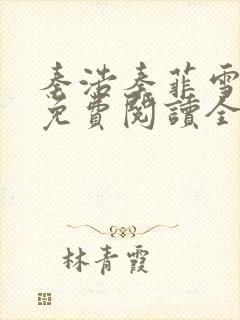 秦浩秦菲雪
免費閱讀全
林青霞